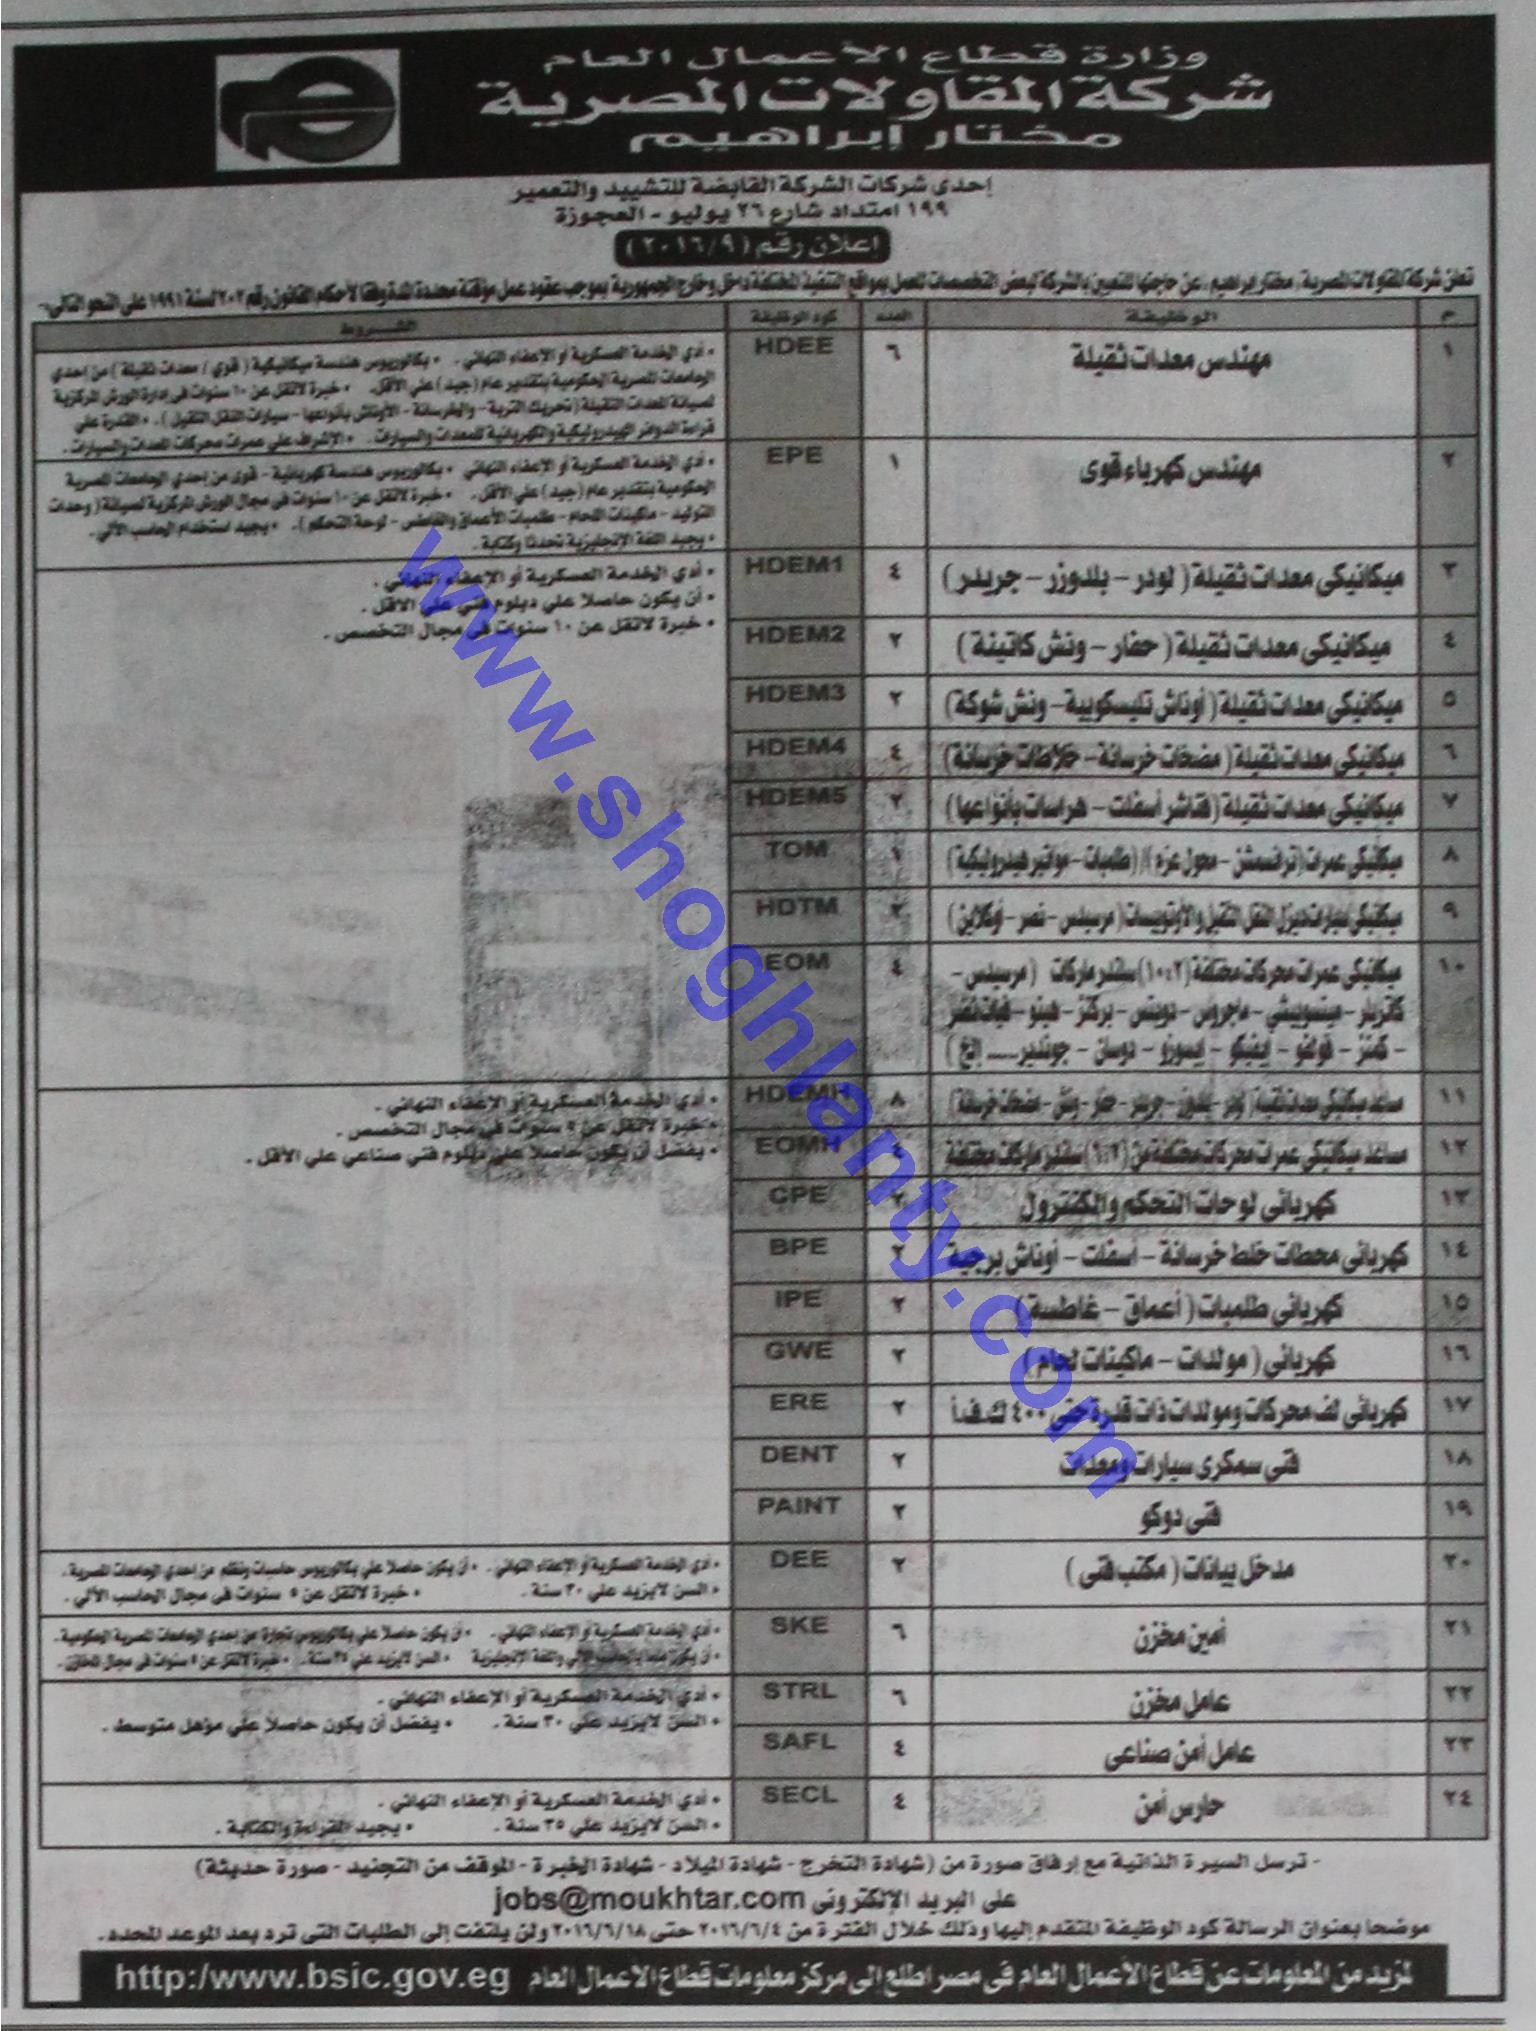 وزارة قطاع الأعمال العام
شركة المقاولات المصرية
مختار إبراهيم
إحدى شركات الشركة القابضة للتشييد والتعمير
١٩٩ امتداد شارع ٢٦ يوليو - العجوزة
إعلان رقم (٢٠١٦/٩)
تعلن شركة المقاولات المصرية، مختار إبراهيم، عن حاجتها للتعيين بالشركة لبعض التخصصات للعمل بمواقع التنفيذ المختلفة داخل وخارج الجمهورية بموجب عقود عمل مؤقتة محددة المدة وفقا لأحكام القانون رقم ٢٠٣ لسنة ١٩٩١ على النحو التالي:-
م الوظيفة العدد كود الوظيفة الشروط
١ مهندس معدات ثقيلة ٦ HDEE
• أدي الخدمة العسكرية أو الإعفاء النهائي. • بكالوريوس هندسة ميكانيكية (قوي / معدات ثقيلة) من إحدي
الجامعات المصرية الحكومية بتقدير عام (جيد) علي الأقل. • خبرة لاتقل عن ١٠ سنوات فى إدارة الورش المركزية
لصيانة المعدات الثقيلة (تحريك التربة - والخرسانة - الأوناش بأنواعها - سيارات النقل الثقيل). • القدرة علي
قراءة الدوائر الهيدروليكية والكهربائية للمعدات والسيارات. • الإشراف علي عمرات محركات المعدات والسيارات.
٢ مهندس كهرباء قوى ١ EPE
• أدي الخدمة العسكرية أو الإعفاء النهائي. • بكالوريوس هندسة كهربائية - قوى من إحدي الجامعات المصرية
الحكومية بتقدير عام (جيد) علي الأقل. • خبرة لاتقل عن ١٠ سنوات فى مجال الورش المركزية لصيانة (وحدات
التوليد - ماكينات اللحام - طلمبات الأعماق والغاطس - لوحة التحكم). • يجيد استخدام الحاسب الألي.
• يجيد اللغة الإنجليزية تحدثا وكتابة.
٣ ميكانيكى معدات ثقيلة (لودر - بلدوزر - جريدر) ٤ HDEM1
• أدي الخدمة العسكرية أو الإعفاء النهائي.
• أن يكون حاصلا علي دبلوم فني علي الاقل.
• خبرة لاتقل عن ١٠ سنوات فى مجال التخصص.
٤ ميكانيكى معدات ثقيلة (حفار - ونش كاتينة) ٢ HDEM2
٥ ميكانيكى معدات ثقيلة (أوناش تليسكوبية - ونش شوكة) ٢ HDEM3
٦ ميكانيكى معدات ثقيلة (مضخات خرسانة - خلاطات خرسانة) ٤ HDEM4
٧ ميكانيكى معدات ثقيلة (فناشر أسفلت - هراسات بأنواعها) ٢ HDEM5
٨ ميكانيكى عمرات (ترانسمشن - محول عزم) / (طلمبات - مواتير هيدروليكية) ١ TOM
٩ ميكانيكى سيارات ديزل النقل الثقيل والأوتوبيسات (مرسيدس - نصر - أوكلاين) ٢ HDTM
١٠ ميكانيكى عمرات محركات مختلفة (١٠:٢) سلندر ماركات (مرسيدس - ٤ EOM
كاتربلر - ميتسوبيشي - ماجروس - دويتس - بركنز - هينو - فيات نصر
- كمنز - فولفو - أيفيكو - ايسوزو - دوسان - جوندير ..... إلخ)
١١ مساعد ميكانيكى معدات ثقيلة (لودر - بلدوزر - جريدر - حفار - ونش - مضخات خرسانة) ٨ HDEMH
• أدي الخدمة العسكرية أو الإعفاء النهائي.
• خبرة لاتقل عن ٩ سنوات فى مجال التخصص.
• يفضل أن يكون حاصلا علي دبلوم فني صناعي علي الأقل.
١٢ مساعد ميكانيكى عمرات محركات مختلفة من (٦:٢) سلندر ماركات مختلفة ٤ EOMH
١٣ كهربائى لوحات التحكم والكنترول ٢ CPE
١٤ كهربائى محطات خلط خرسانة - أسفلت - أوناش برجية ٢ BPE
١٥ كهربائى طلمبات (أعماق - غاطسة) ٢ IPE
١٦ كهربائى (مولدات - ماكينات لحام) ٢ GWE
١٧ كهربائى لف محركات ومولدات ذات قدرة حتى ٤٠٠ ك.ف.أ ٢ ERE
١٨ فنى سمكرى سيارات ومعدات ٢ DENT
١٩ فنى دوكو ٢ PAINT
٢٠ مدخل بيانات (مكتب فنى) ٢ DEE
• أدي الخدمة العسكرية أو الإعفاء النهائي. • أن يكون حاصلا علي بكالوريوس حاسبات ونظم من إحدي الجامعات المصرية.
• السن لايزيد علي ٣٠ سنة. • خبرة لاتقل عن ٥ سنوات فى مجال الحاسب الألي.
٢١ أمين مخزن ٦ SKE
• أدي الخدمة العسكرية أو الإعفاء النهائي. • أن يكون حاصلا علي بكالوريوس تجارة من إحدي الجامعات المصرية الحكومية.
• أن يكون ملما بالحاسب الألي واللغة الإنجليزية • السن لايزيد علي ٣٥ سنة. • خبرة لاتقل عن ٥ سنوات فى مجال المخازن.
٢٢ عامل مخزن ٦ STRL
• أدي الخدمة العسكرية أو الإعفاء النهائي.
• السن لايزيد علي ٣٠ سنة. • يفضل أن يكون حاصلا علي مؤهل متوسط.
٢٣ عامل أمن صناعى ٤ SAFL
٢٤ حارس أمن ٤ SECL
• أدي الخدمة العسكرية أو الإعفاء النهائي.
• السن لايزيد علي ٣٥ سنة. • يجيد القراءة والكتابة.
- ترسل السيرة الذاتية مع إرفاق صورة من (شهادة التخرج - شهادة الميلاد - شهادة الخبرة - الموقف من التجنيد - صورة حديثة)
على البريد الإلكترونى jobs@moukhtar.com
موضحا بعنوان الرسالة كود الوظيفة المتقدم إليها وذلك خلال الفترة من ٢٠١٦/٦/٤ حتى ٢٠١٦/٦/١٨ ولن يلتفت إلى الطلبات التى ترد بعد الموعد المحدد.
لمزيد من المعلومات عن قطاع الأعمال العام فى مصر اطلع إلى مركز معلومات قطاع الاعمال العام http:/www.bsic.gov.eg
www.shoghlanty.com